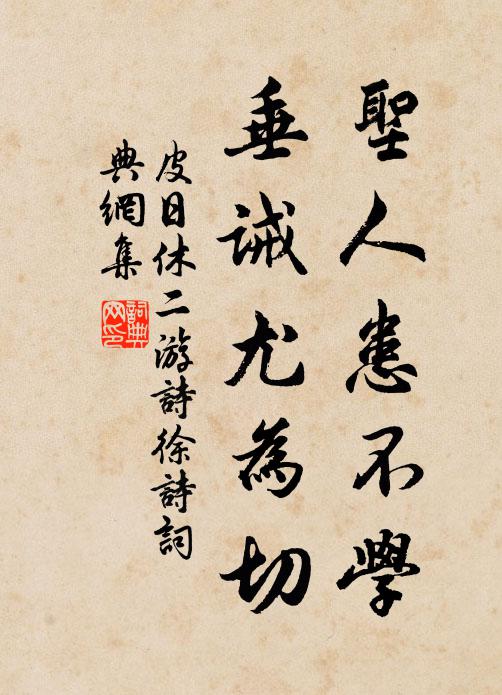 聖人患不學
垂誡尤為切
皮日休二游詩徐詩詞
典網集
詞典
网印